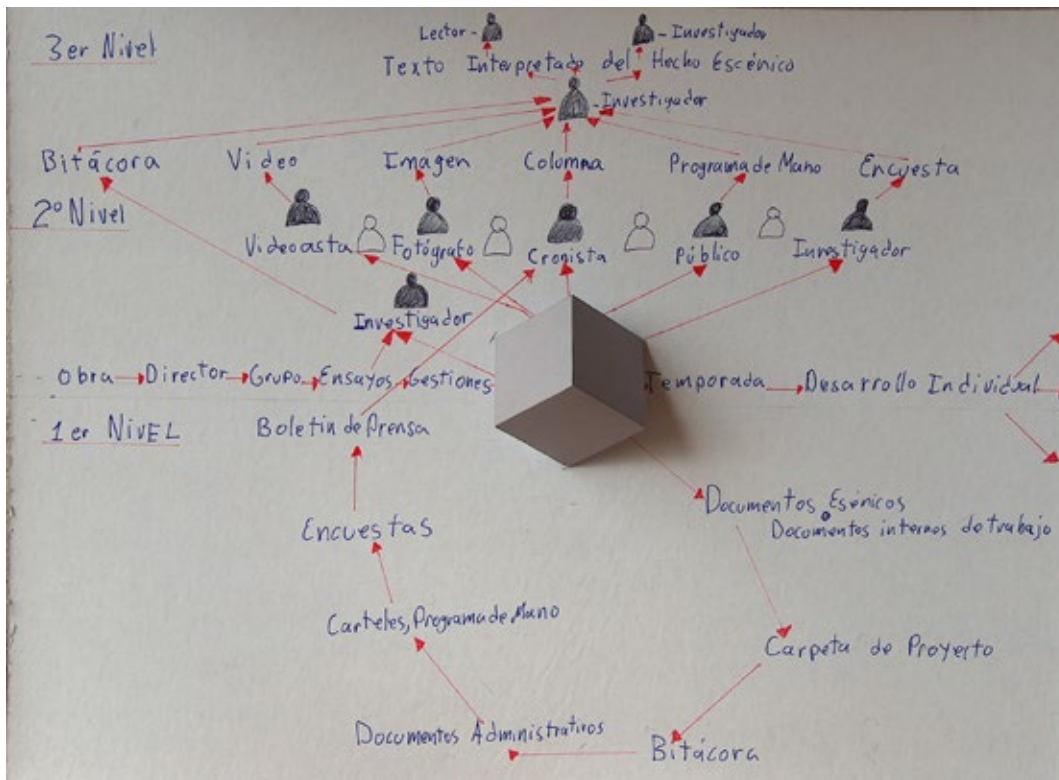 3er Nivel
Lector -
- Investigador
Texto Interpretado del Hecho Escénico
- Investigador
Bitácora
Video
Imagen
Columna
Programa de Mano
Encuesta
2º Nivel
Videoasta
Fotógrafo
Cronista
Público
Investigador
Investigador
Obra
Director
Grupo
Ensayos
Gestiones
Temporada
Desarrollo Individual
1er NivEL
Boletin de Prensa
Documentos Esénicos
o
Documentos internos de trabajo
Encuestas
Carteles, Programa de Mano
Carpeta de Proyecto
Documentos Administrativos
Bitácora